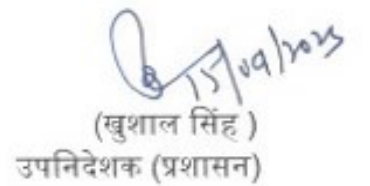 15/09/2025
(खुशाल सिंह )
उपनिदेशक (प्रशासन)